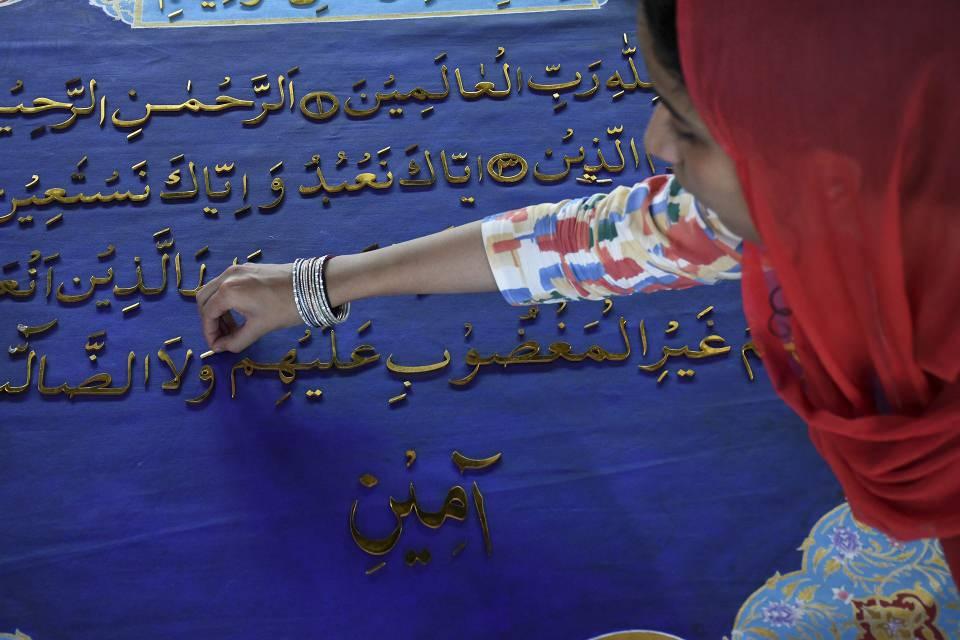 للّٰهِ رَبِّ الْعٰلَمِيْنَ ١ الرَّحْمٰنِ الرَّحِيْ
الَّذِيْنِ ٣ اِيَّاكَ نَعْبُدُ وَ اِيَّاكَ نَسْتَعِيْنُ
الَّذِيْنَ اَنْعَ
غَيْرِ الْمَغْضُوْبِ عَلَيْهِمْ وَلَا الضَّآلّ
آمِيْن